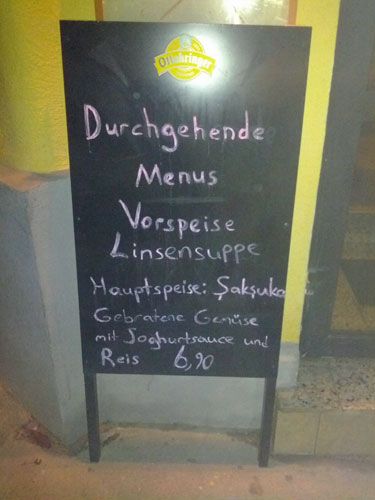 Ottakringer
Durchgehende
Menus
Vorspeise
Linsensuppe
Hauptspeise: Şakşuka
Gebratene Gemüse
mit Joghurtsauce und
Reis 6,90